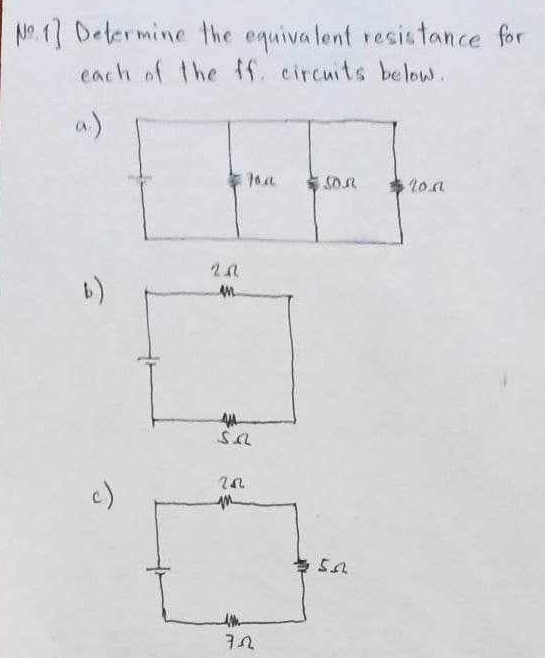 No. 1] Determine the equivalent resistance for
each of the ff. circuits below.
a.)
50Ω
20Ω
b)
2Ω
5Ω
c)
2Ω
5Ω
7Ω